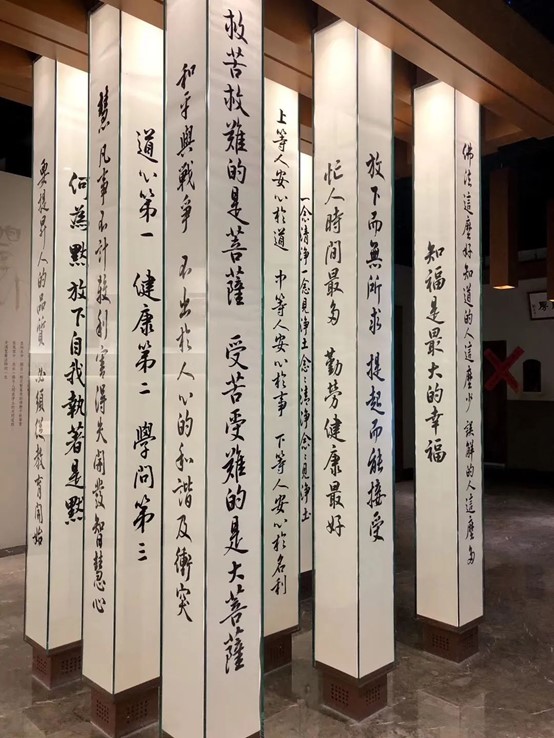 佛法這麼好知道的人這麼少 誤解的人這麼多
知福是最大的幸福
放下而無所求 提起而能接受
忙人時間最多 勤勞健康最好
一念清淨一念見淨土念念清淨念念見淨土
上等人安心於道 中等人安心於事 下等人安心於名利
救苦救難的是菩薩 受苦受難的是大菩薩
和平與戰爭 不出於人心的和諧及衝突
道心第一 健康第二 學問第三
慧 凡事不計較利害得失開發智慧心
何為默放下自我執著是默
要提昇人的品質 必須從教育開始